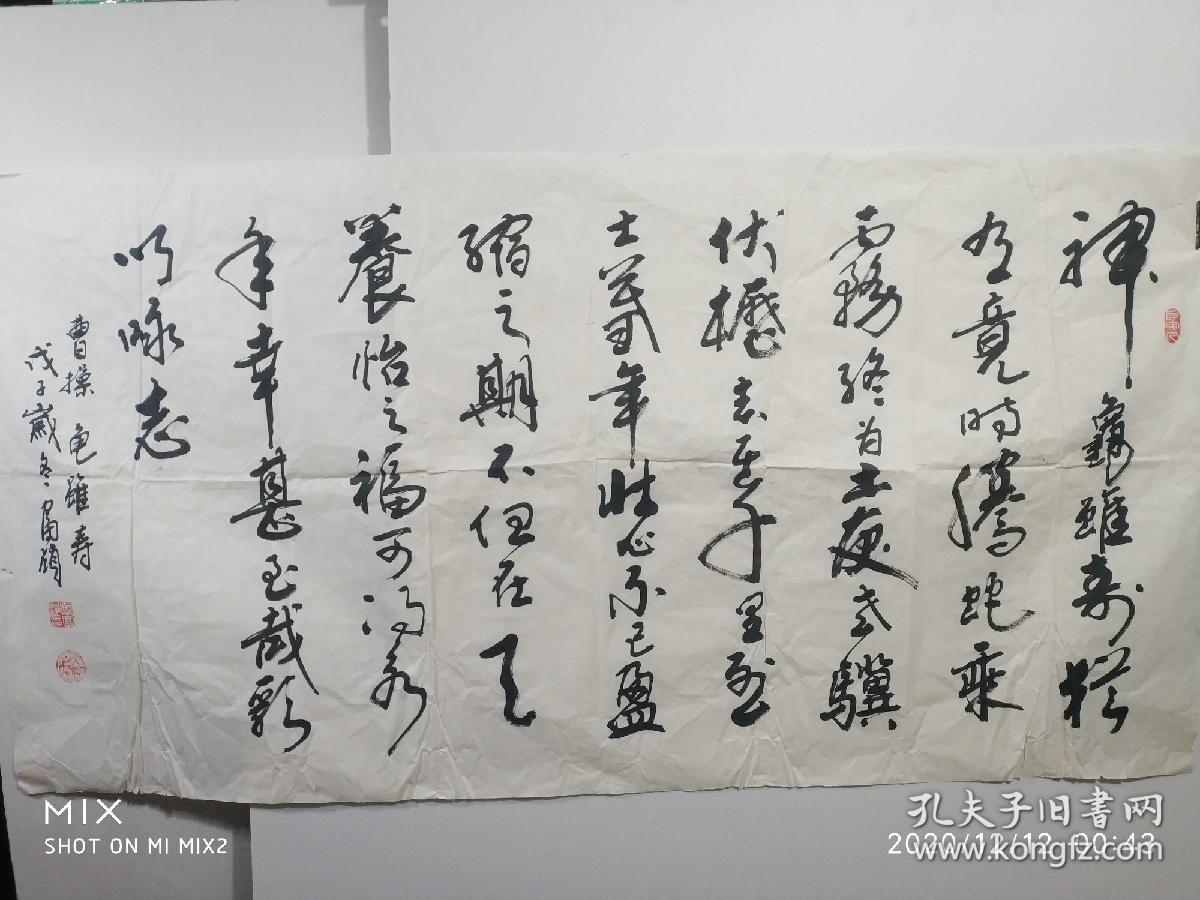 神龜雖壽猶
有竟時騰蛇乘
霧終為土灰老驥
伏櫪志在千里烈
士暮年壯心不已盈
縮之期不但在天
養怡之福可得永
年幸甚至哉歌
以咏志
曹操 龟雖寿
戊子歲冬
MIX
SHOT ON MI MIX2
孔夫子旧書网
2020/12/12 00:43
www.kongfz.com